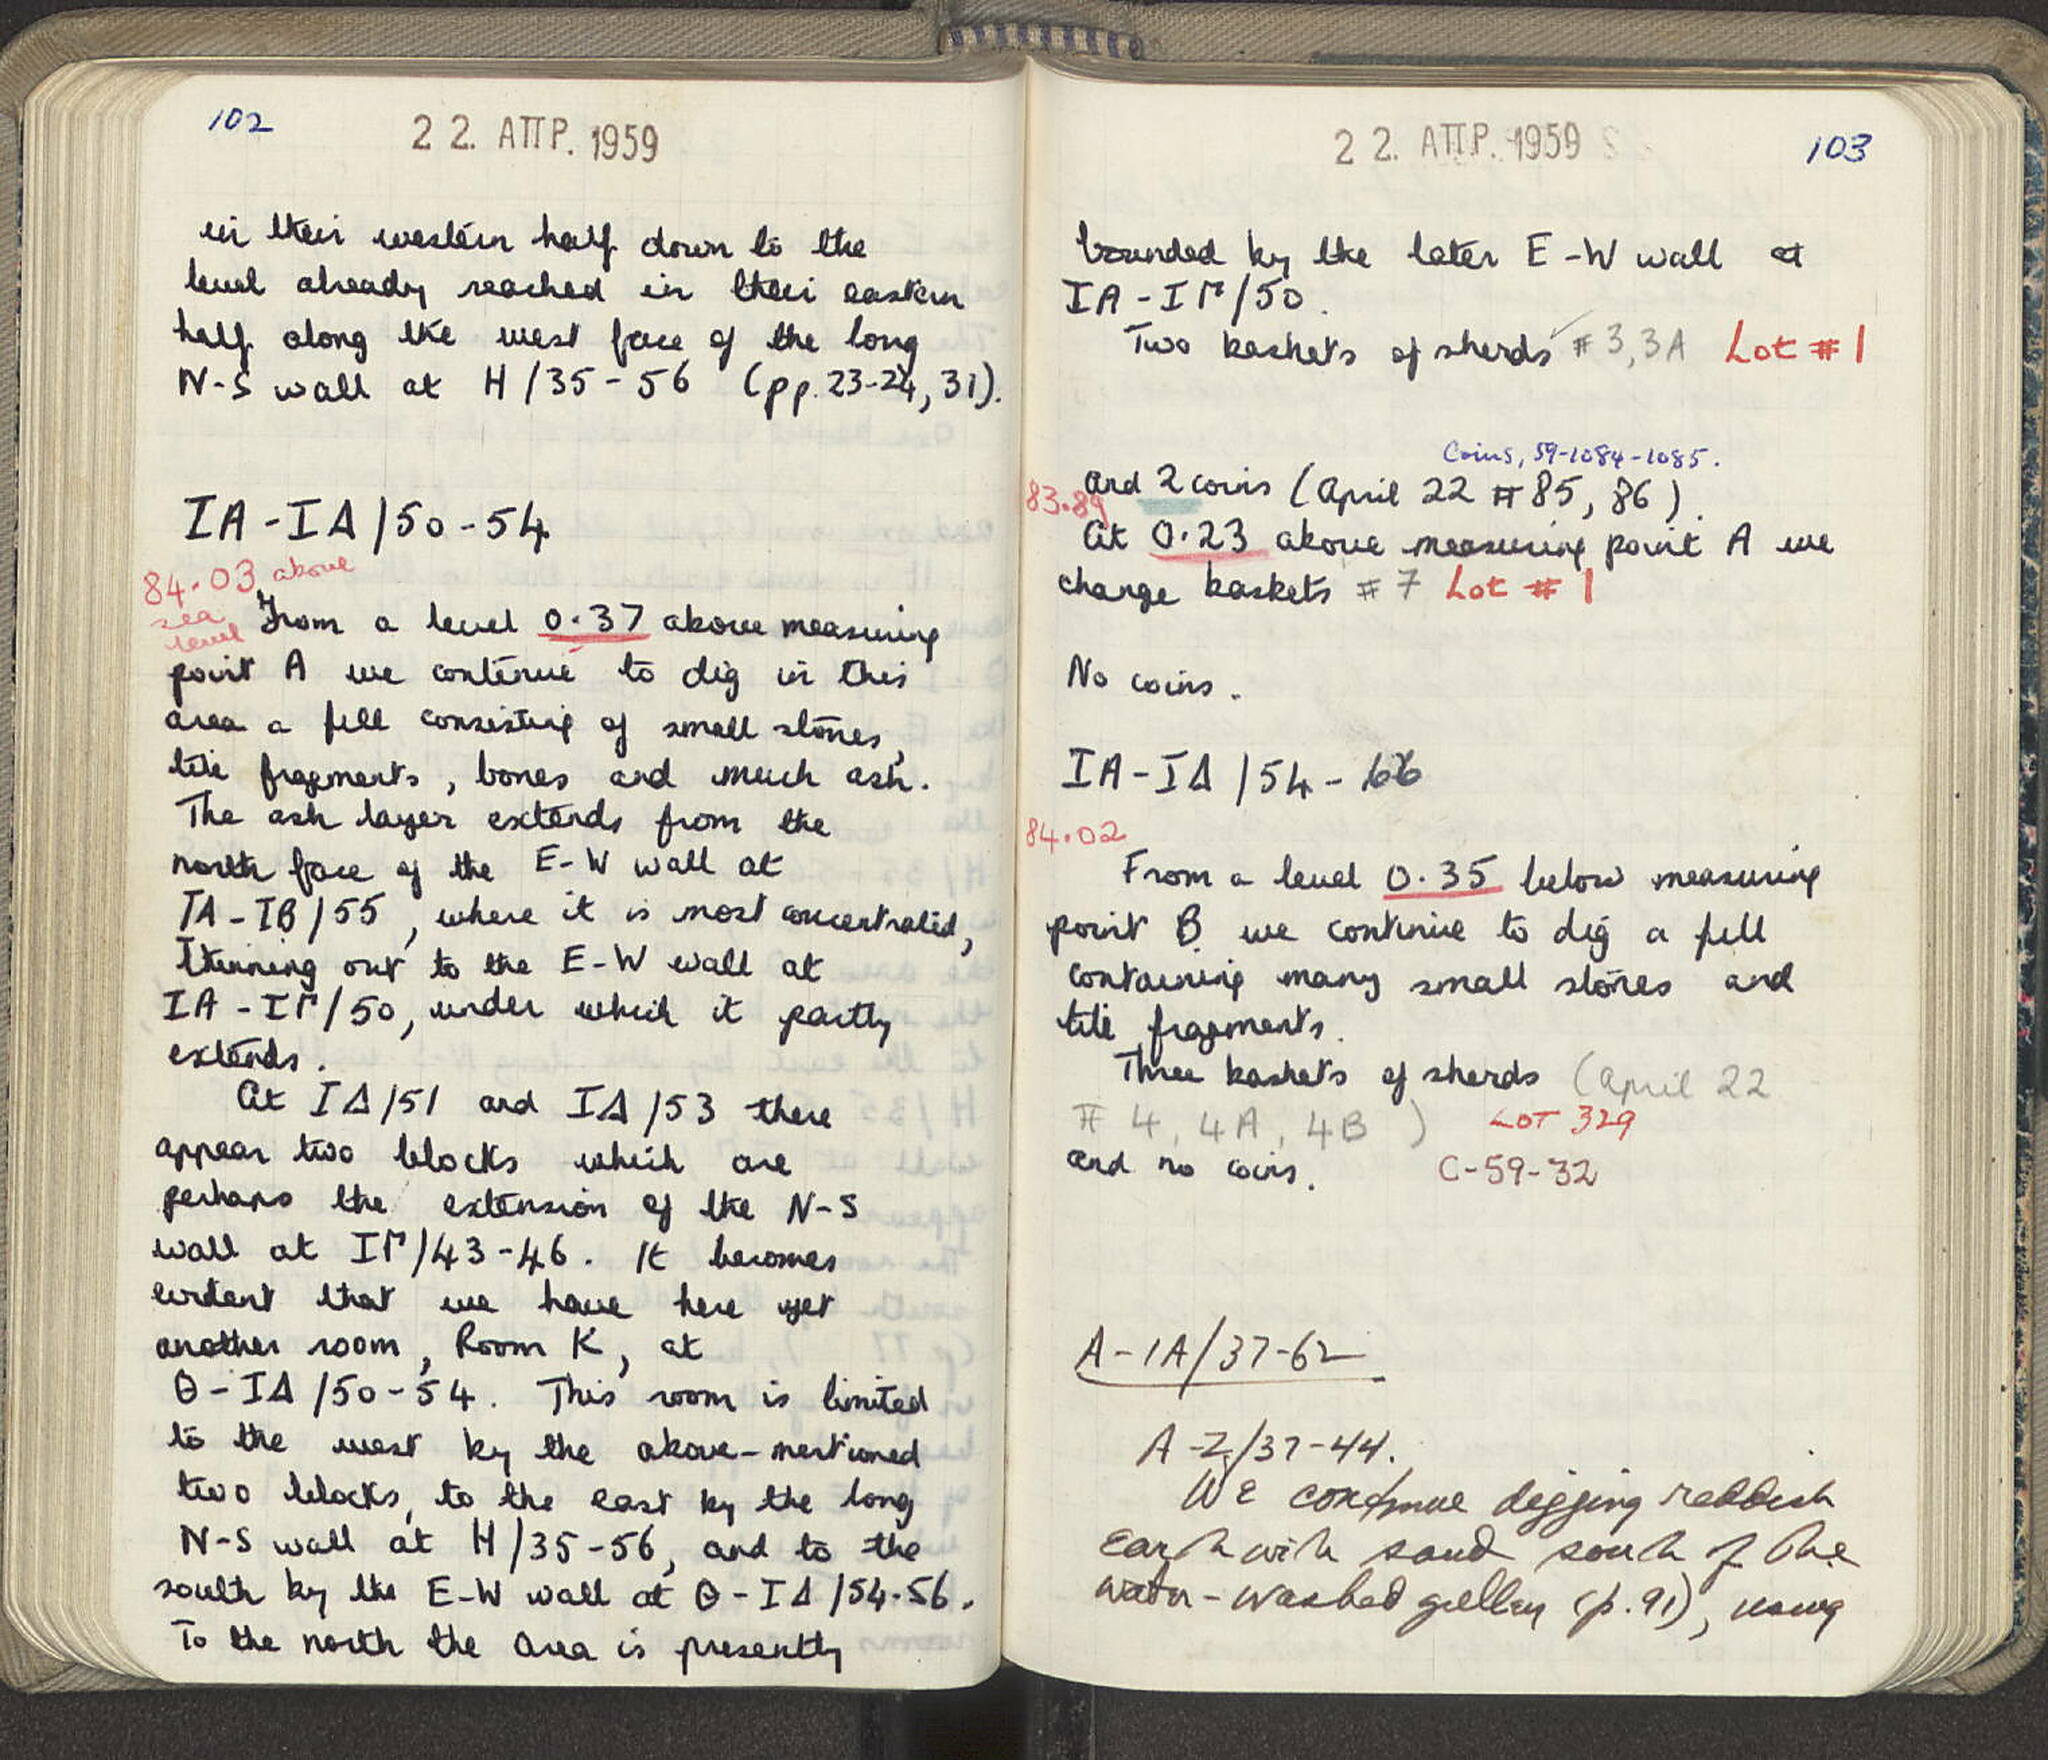 102
22. ΑΠΡ. 1959
in their western half down to the
level already reached in their eastern
half along the west face of the long
N-S wall at H/35-56 (pp. 23-24, 31).
ΙΑ-ΙΔ/50-54
84.03 above
sea
level
From a level 0.37 above measuring
point A we continue to dig in this
area a fill consisting of small stones,
tile fragments, bones and much ash.
The ash layer extends from the
north face of the E-W wall at
ΙΑ-ΙΒ/55, where it is most concentrated,
thinning out to the E-W wall at
ΙΑ-ΙΓ/50, under which it partly
extends.
At ΙΔ/51 and ΙΔ/53 there
appear two blocks which are
perhaps the extension of the N-S
wall at ΙΓ/43-46. It becomes
evident that we have here yet
another room, Room K, at
Θ-ΙΔ/50-54. This room is limited
to the west by the above-mentioned
two blocks, to the east by the long
N-S wall at H/35-56, and to the
south by the E-W wall at Θ-ΙΔ/54-56.
To the north the area is presently
22. ΑΠΡ. 1959
103
bounded by the later E-W wall at
ΙΑ-ΙΓ/50.
Two baskets of sherds ✓ # 3, 3A Lot #1
Coins, 59-1084-1085.
and 2 coins (April 22 # 85, 86).
83.89
At 0.23 above measuring point A we
change baskets # 7 Lot #1
No coins.
ΙΑ-ΙΔ/54-66
84.02
From a level 0.35 below measuring
point B we continue to dig a fill
containing many small stones and
tile fragments.
Three baskets of sherds (April 22
# 4, 4A, 4B) LOT 329
and no coins. C-59-32
A-IA/37-62
A-Z/37-44.
We continue digging reddish
earth with sand south of the
water-washed gulley (p. 91), using